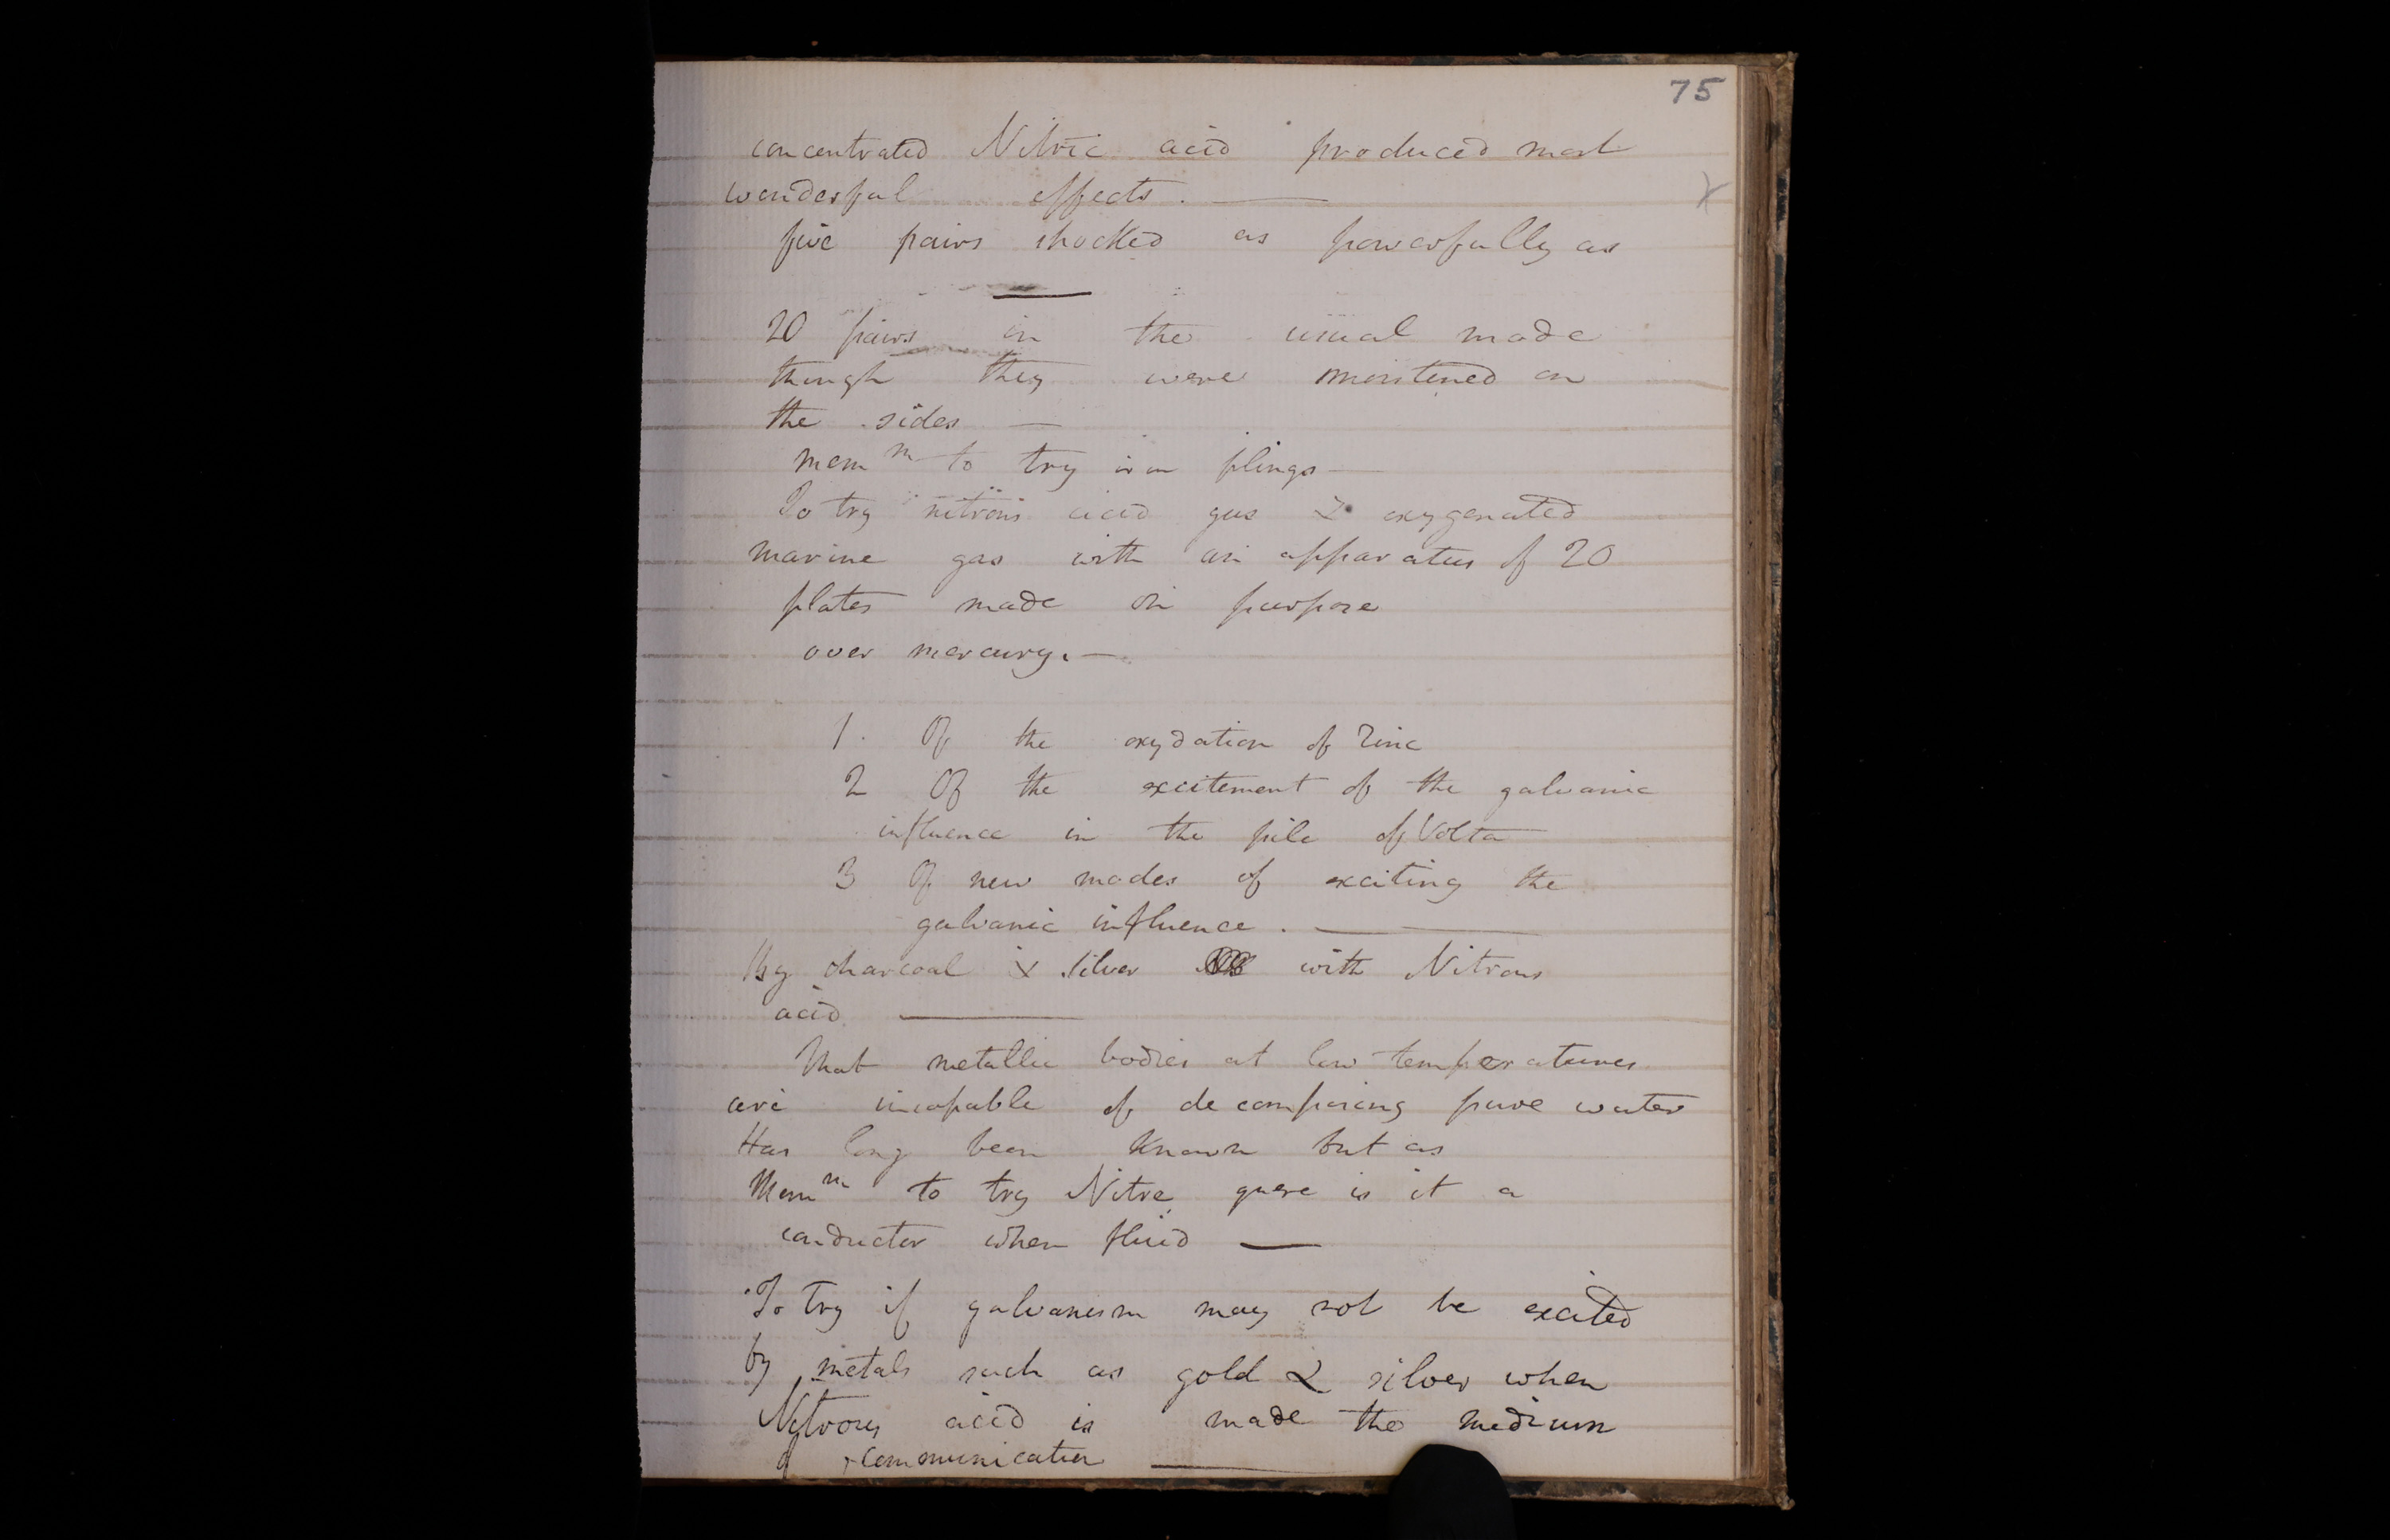 75
concentrated Nitric acid produced most
wonderful effects. —
five pairs shocked as powerfully as
—
20 pairs in the usual mode
though they were moistened on
the sides —
mem^m to try iron filings —
To try nitrous acid gas & oxygenated
marine gas with an apparatus of 20
plates made on purpose
over mercury. —
1. Of the oxydation of Zinc
2 Of the excitement of the galvanic
influence in the pile of Volta
3 Of new modes of exciting the
galvanic influence. — —
By charcoal & silver with Nitrous
acid —
That metallic bodies at low temperatures
are incapable of decomposing pure water
Has long been known but as
Mem^m to try Nitre quere is it a
conductor when fluid —
To try if galvanism may not be excited
by metals such as gold & silver when
Nitrous acid is made the medium
of communication —